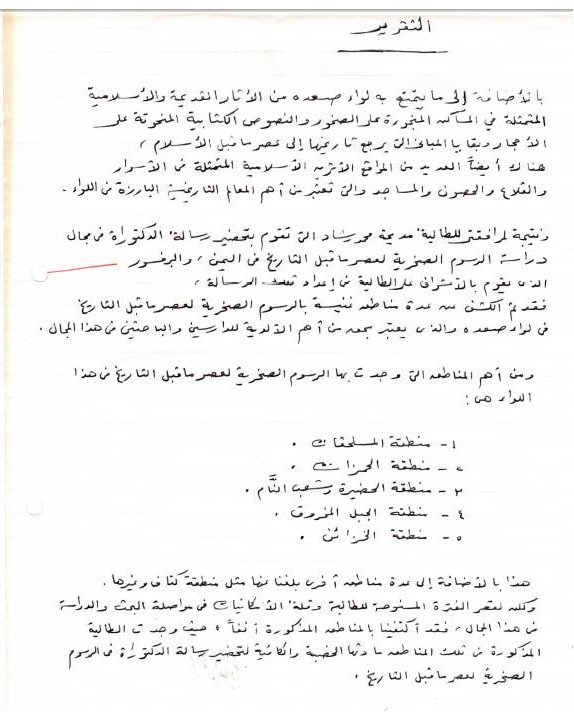 التقرير
بالأضافة إلى ما يتمتع به لواء صعده من الأثار القديمة والأسلامية
المتمثلة في المساكن المنجورة على الصخور والنصوص الكتابية المنحوتة على
الأحجار وبقايا المباني التي يرجع تاريخها إلى عصر ما قبل الأسلام ،
هناك أيضاً العديد من المواقع الأثريه الأسلامية المتمثلة في الأسوار
والقلاع والحصون والمساجد والتي تعتبر من أهم المعالم التاريخية البارزة في اللواء .
ونتيجة لمرافقتي للطالبة / مديحة محمد رشاد التي تقوم بتحضير رسالة الدكتوراة في مجال
دراسة الرسوم الصخرية لعصر ما قبل التاريخ في اليمن ، والبرفسور
الذي يقوم بالأشراف على الطالبة في إعداد تلك الرسالة ،
فقد تم الكشف عن عدة مناطق غنية بالرسوم الصخرية لعصر ما قبل التاريخ
في لواء صعده والذي يعتبر بحق من أهم الألوية للدارسين والباحثين في هذا المجال .
ومن أهم المناطق التي وجدت بها الرسوم الصخرية لعصر ما قبل التاريخ في هذا
اللواء هي :
١- منطقة المسلحقات .
٢- منطقة الحمزات .
٣- منطقة الحضيرة وشعب النَّام .
٤- منطقة الجبل المخروق .
٥- منطقة الخزائن .
هذا بالأضافة إلى عدة مناطق أخرى بلغنا عنها مثل منطقة كتاف وغيرها .
ولكن لقصر الفترة الممنوحة للطالبة وقلة الأمكانيات في مواصلة البحث والدراسة
في هذا المجال ، فقد أكتفينا بالمناطق المذكورة أنفاً ، حيث وجدت الطالبة
المذكورة في تلك المناطق مادتها الخصبة والكافية لتحضير رسالة الدكتوراة في الرسوم
الصخرية لعصر ما قبل التاريخ .